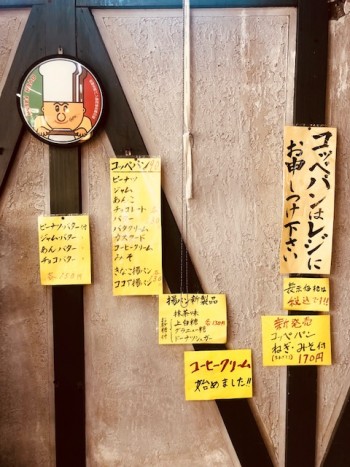 コッペパンはレジに
お申しつけ下さい
コッペパン
ピーナツ
ジャム
あんこ
チョコレート
バター
バタークリーム
カスタード
コーヒークリーム
みそ
きなこ揚パン
ココア揚パン
ピーナツ・バター付
ジャム・バター 〃
あん・バター 〃
チョコバター 〃
揚パン新製品
抹茶味
上白糖
グラニュー糖
ドーナツシュガー
コーヒークリーム
始めました!!
表示価格は
税込です!!
新発売
コッペパン
ねぎ・みそ付
170円